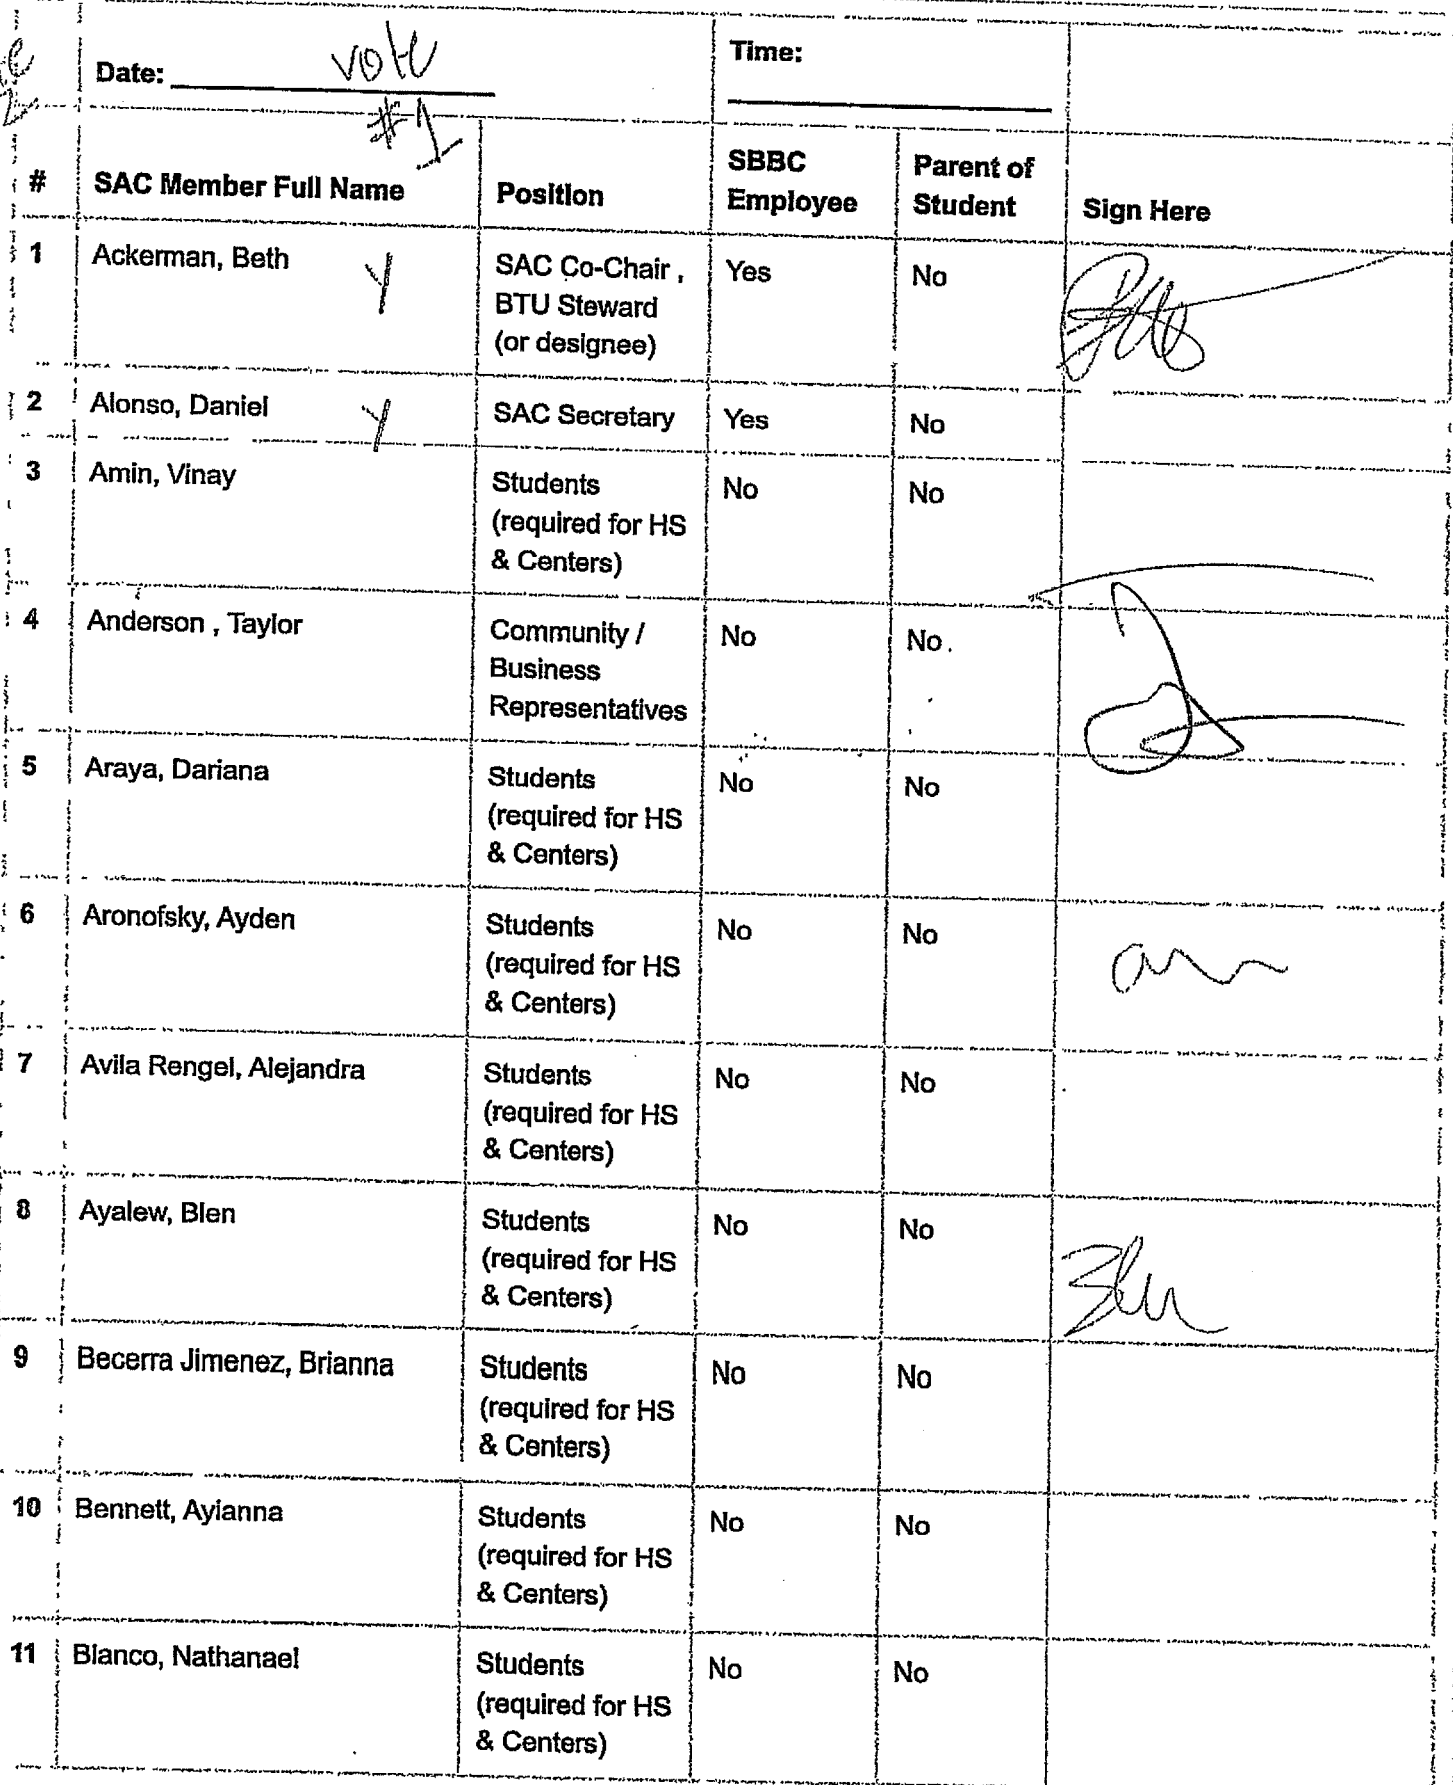 Date: vote
#1
Time:
# SAC Member Full Name Position SBBC Employee Parent of Student Sign Here
1 Ackerman, Beth Y SAC Co-Chair , BTU Steward (or designee) Yes No
2 Alonso, Daniel Y SAC Secretary Yes No
3 Amin, Vinay Students (required for HS & Centers) No No
4 Anderson , Taylor Community / Business Representatives No No
5 Araya, Dariana Students (required for HS & Centers) No No
6 Aronofsky, Ayden Students (required for HS & Centers) No No
7 Avila Rengel, Alejandra Students (required for HS & Centers) No No
8 Ayalew, Blen Students (required for HS & Centers) No No
9 Becerra Jimenez, Brianna Students (required for HS & Centers) No No
10 Bennett, Aylanna Students (required for HS & Centers) No No
11 Blanco, Nathanael Students (required for HS & Centers) No No